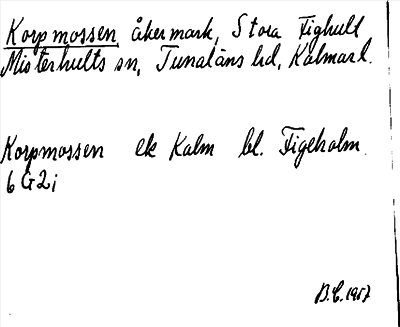 Korpmossen, åkermark, Stora Fighult
Misterhults sn, Tunaläns hd, Kalmarl.
Korpmossen ek Kalm bl. Figeholm.
6G2i
B.C. 1957